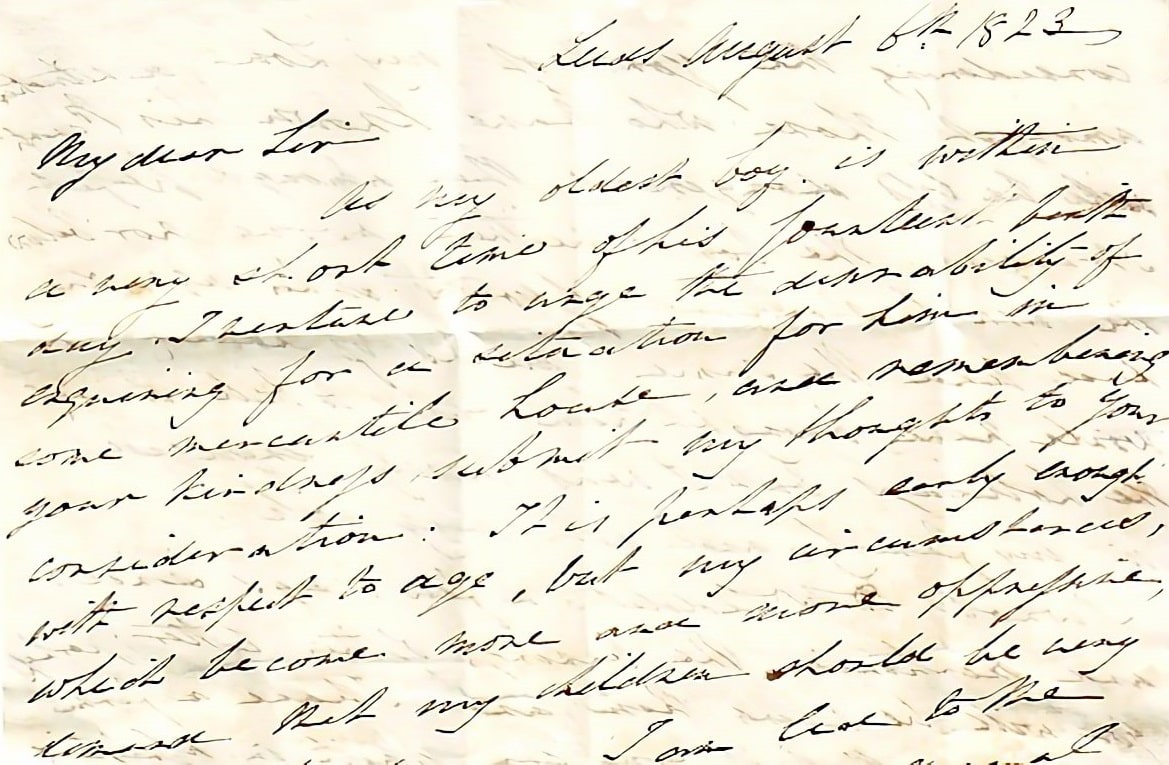 Leeds August 6th 1823
My dear Sir
As my oldest boy is within
a very short time of his fourteenth birth
day. I venture to urge the desirability of
enquiring for a situation for him in
some mercantile house, and remembering
your kindness, submit my thoughts to your
consideration. It is perhaps early enough
with respect to age, but my circumstances,
which become more and more oppressive,
demand that my children should be very
I am led to the